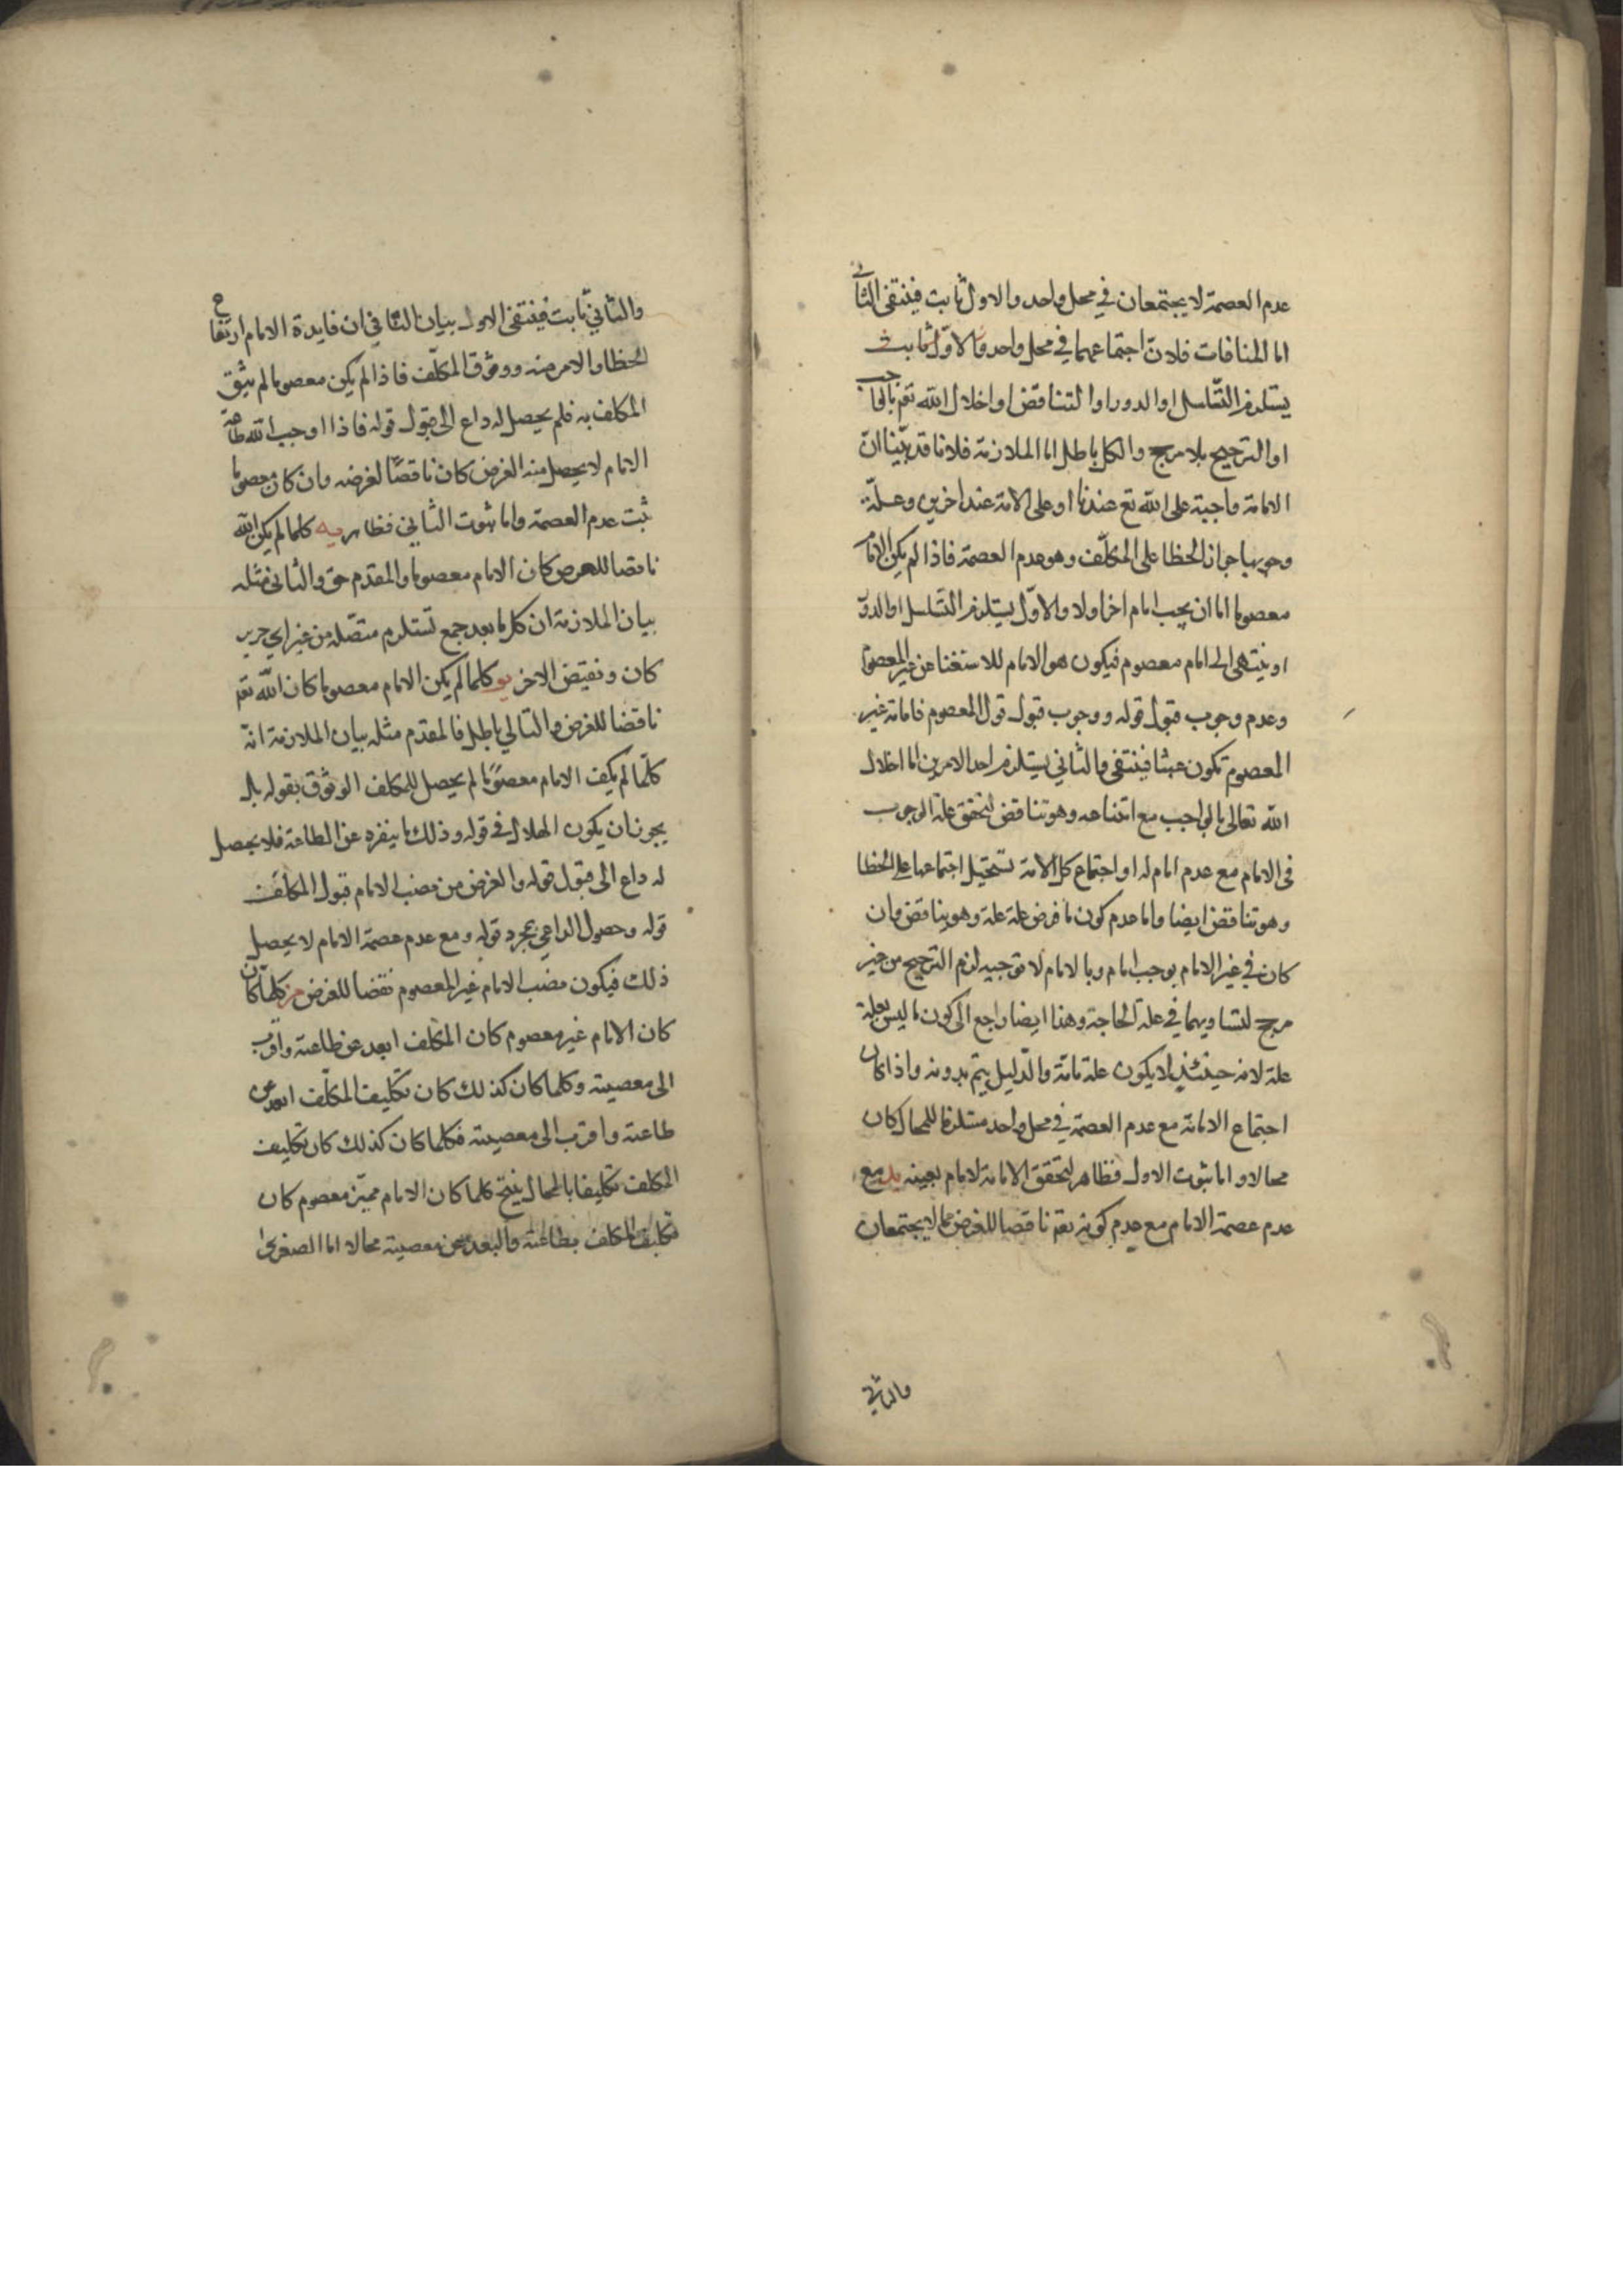 عدم العصمة لا يجتمعان في محل واحد والاول ثابت فينتفى الثانى
اما المنافات فلان اجتماعهما في محل واحد والاول ثابت
يستلزم التسلسل او الدور او التناقض او اخلال الله تعم بالواجب
او الترجيح بلا مرجح والكل باطل اما الملازمة فلانا قد بينا ان
الامامة واجبة على الله تع عندنا او على الامة عند اخرين وعلة
وجوبها جواز الخطا على المكلف وهو عدم العصمة فاذا لم يكن الامام
معصوما اما ان يجب امام اخر او لا والاول يستلزم التسلسل او الدور
او ينتهى الى امام معصوم فيكون هو الامام للاستغنا عن غير المعصوم
وعدم وجوب قبول قوله ووجوب قبول قول المعصوم فامامة غير
المعصوم تكون عبثا فينتفى والثاني يستلزم احد الامرين اما اخلال
الله تعالى بالواجب مع امتناعه وهو تناقض لتحقق علة الوجوب
فى الامام مع عدم امام له او اجتماع كل الامة تستحيل اجتماعها على الخطا
وهو تناقض ايضا واما عدم كون ما فرض علة علة وهو يناقض وان
كان في غير الامام يوجب امام وبالامام لا توجبه لزم الترجيح من غير
مرجح لتساويهما في علة الحاجة وهذا ايضا راجع الى كون ما ليس بعلة
علة لانه حينئذ لا يكون علة تامة والدليل يتم بدونه واذا كان
اجتماع الامامة مع عدم العصمة في محل واحد مستلزما للمحال كان
محالا واما ثبوت الاول فظاهر لتحقق الامامة لامام بعينه يد مع
عدم عصمة الامام مع عدم كونه تعم ناقصا للغرض مما لا يجتمعان
والثاني
والثاني ثابت فينتفى الاول بيان الثاني ان فايدة الامام ارتفاع
الخطا والامن منه ووثوق المكلف فاذا لم يكن معصوما لم يثق
المكلف به فلم يحصل له داع الى قبول قوله فاذا اوجب الله طاعة
الامام لا يحصل منه الغرض كان ناقصا لغرضه وان كان معصوما
ثبت عدم العصمة واما ثبوت الثاني فظاهر يه كلما لم يكن الله
ناقصا للغرض كان الامام معصوما والمقدم حق والثانى مثله
بيان الملازمة ان كل مانعة جمع تستلزم متصلة من غير اي جزير
كان ونقيض الاخر يو كلما لم يكن الامام معصوما كان الله تعم
ناقضا للغرض والتالي باطل فالمقدم مثله بيان الملازمة انه
كلما لم يكن الامام معصوما لم يحصل للمكلف الوثوق بقوله بل
يجوز ان يكون الهلاك في قوله وذلك ما ينفره عن الطاعة فلا يحصل
له داع الى قبول قوله والغرض من نصب الامام قبول المكلف
قوله وحصول الداعي بمجرد قوله ومع عدم عصمة الامام لا يحصل
ذلك فيكون نصب الامام غير المعصوم نقضا للغرض يز كلما كان
كان الامام غير معصوم كان المكلف ابعد عن طاعته واقرب
الى معصيته وكلما كان كذلك كان تكليف المكلف ابعد عن
طاعته واقرب الى معصيته فكلما كان كذلك كان تكليف
المكلف تكليفا بالمحال ينتج كلما كان الامام غير معصوم كان
تكليف المكلف بطاعته والبعد عن معصيته محالا اما الصغرى